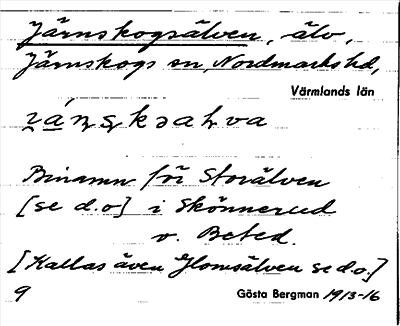 Järnskogsälven, älv,
Järnskogs sn, Nordmarks hd,
Värmlands län
Binamn för Storälven
[se d.o] i Skönnerud
o. Beted.
[Kallas även Glomsälven se d.o.]
9 Gösta Bergman 1913-16